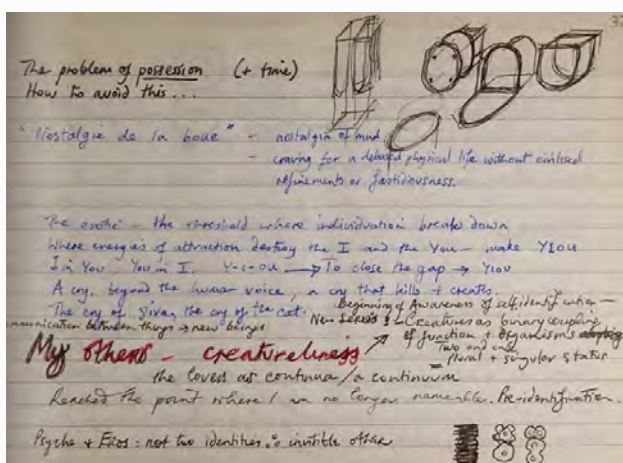 37
The problem of possession (+ time)
How to avoid this...
"Nostalgie de la boue" - nostalgia of mud.
- craving for a debased physical life without civilised
refinements or fastidiousness.
The erotic - the threshold where individuation breaks down
Where energies of attraction destroy the I and the You - make YIOU
I in You You in I. Y-I-OU → To close the gap → YIOU
A cry, beyond the human voice, a cry that kills + creates.
The cry of the cat.
Beginning of Awareness of self identification -
communication between things → new beings
New Series: - Creatures as binary coupling
of function + organisms
My others - creatureliness
Two and one
= Plural + singular status
the lovers as continua / a continuum
Reached the point where I am no longer nameable. Pre-identification.
Psyche + Eros: not two identities : invisible other